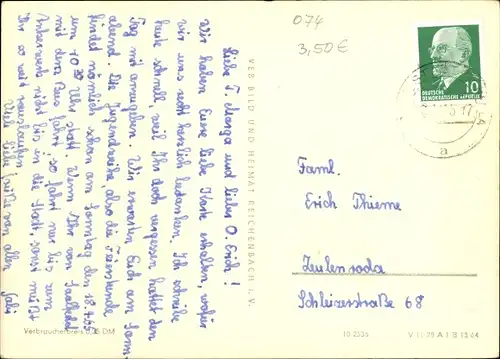 Liebe T. Marga und lieber O. Erich!
Wir haben Eure liebe Karte erhalten, wofür
wir uns recht herzlich bedanken. Ich schreibe
heute schnell, weil Ihr doch vergessen hattet den
Tag mit anzugeben. Wir erwarten Euch am Sonn-
abend. Die Jugendweihe, also die Feierstunde
findet nämlich schon am Sonntag den 18.4.65
um 10 30 Uhr statt. Wenn Ihr von Saalfeld
mit dem Bus fahrt, so fahrt nur bis zum
nicht bis in die Stadt, sonst müßt
Ihr so weit rauslaufen.
Viele liebe Grüße von allen
Verbraucherpreis 0,25 DM
VEB BILD UND HEIMAT REICHENBACH i. V.
074
3,50 €
10
DEUTSCHE
DEMOKRATISCHE REPUBLIK
a
Faml.
Erich Thieme
Zeulenroda
Schleizerstraße 68
10 2535
V 11 28 A 1 B 15 64